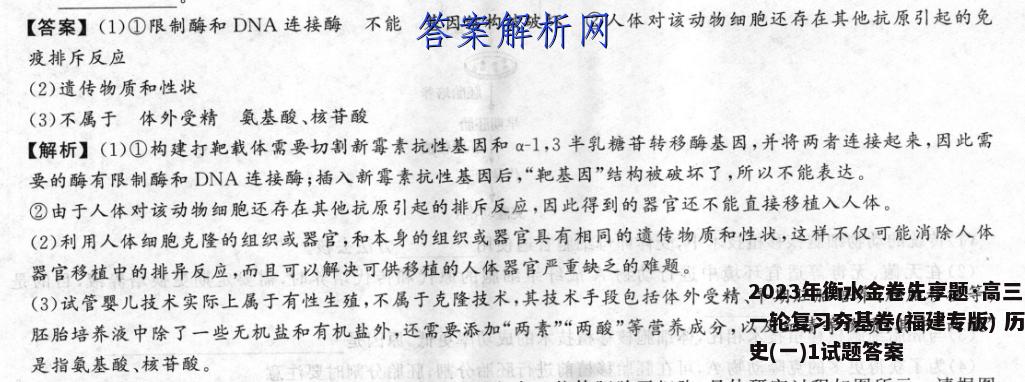 【答案】(1)①限制酶和 DNA 连接酶 不能 人体对该动物细胞还存在其他抗原引起的免
答案解析网
疫排斥反应
(2)遗传物质和性状
(3)不属于 体外受精 氨基酸、核苷酸
【解析】(1)①构建打靶载体需要切割新霉素抗性基因和 α-1,3 半乳糖苷转移酶基因,并将两者连接起来,因此需
要的酶有限制酶和 DNA 连接酶;插入新霉素抗性基因后,“靶基因”结构被破坏了,所以不能表达。
②由于人体对该动物细胞还存在其他抗原引起的排斥反应,因此得到的器官还不能直接移植入人体。
(2)利用人体细胞克隆的组织或器官,和本身的组织或器官具有相同的遗传物质和性状,这样不仅可能消除人体
器官移植中的排异反应,而且可以解决可供移植的人体器官严重缺乏的难题。
(3)试管婴儿技术实际上属于有性生殖,不属于克隆技术,其技术手段包括体外受精、
胚胎培养液中除了一些无机盐和有机盐外,还需要添加“两素”“两酸”等营养成分,以及
是指氨基酸、核苷酸。
2023年衡水金卷先享题·高三
一轮复习夯基卷(福建专版) 历
史(一)1试题答案